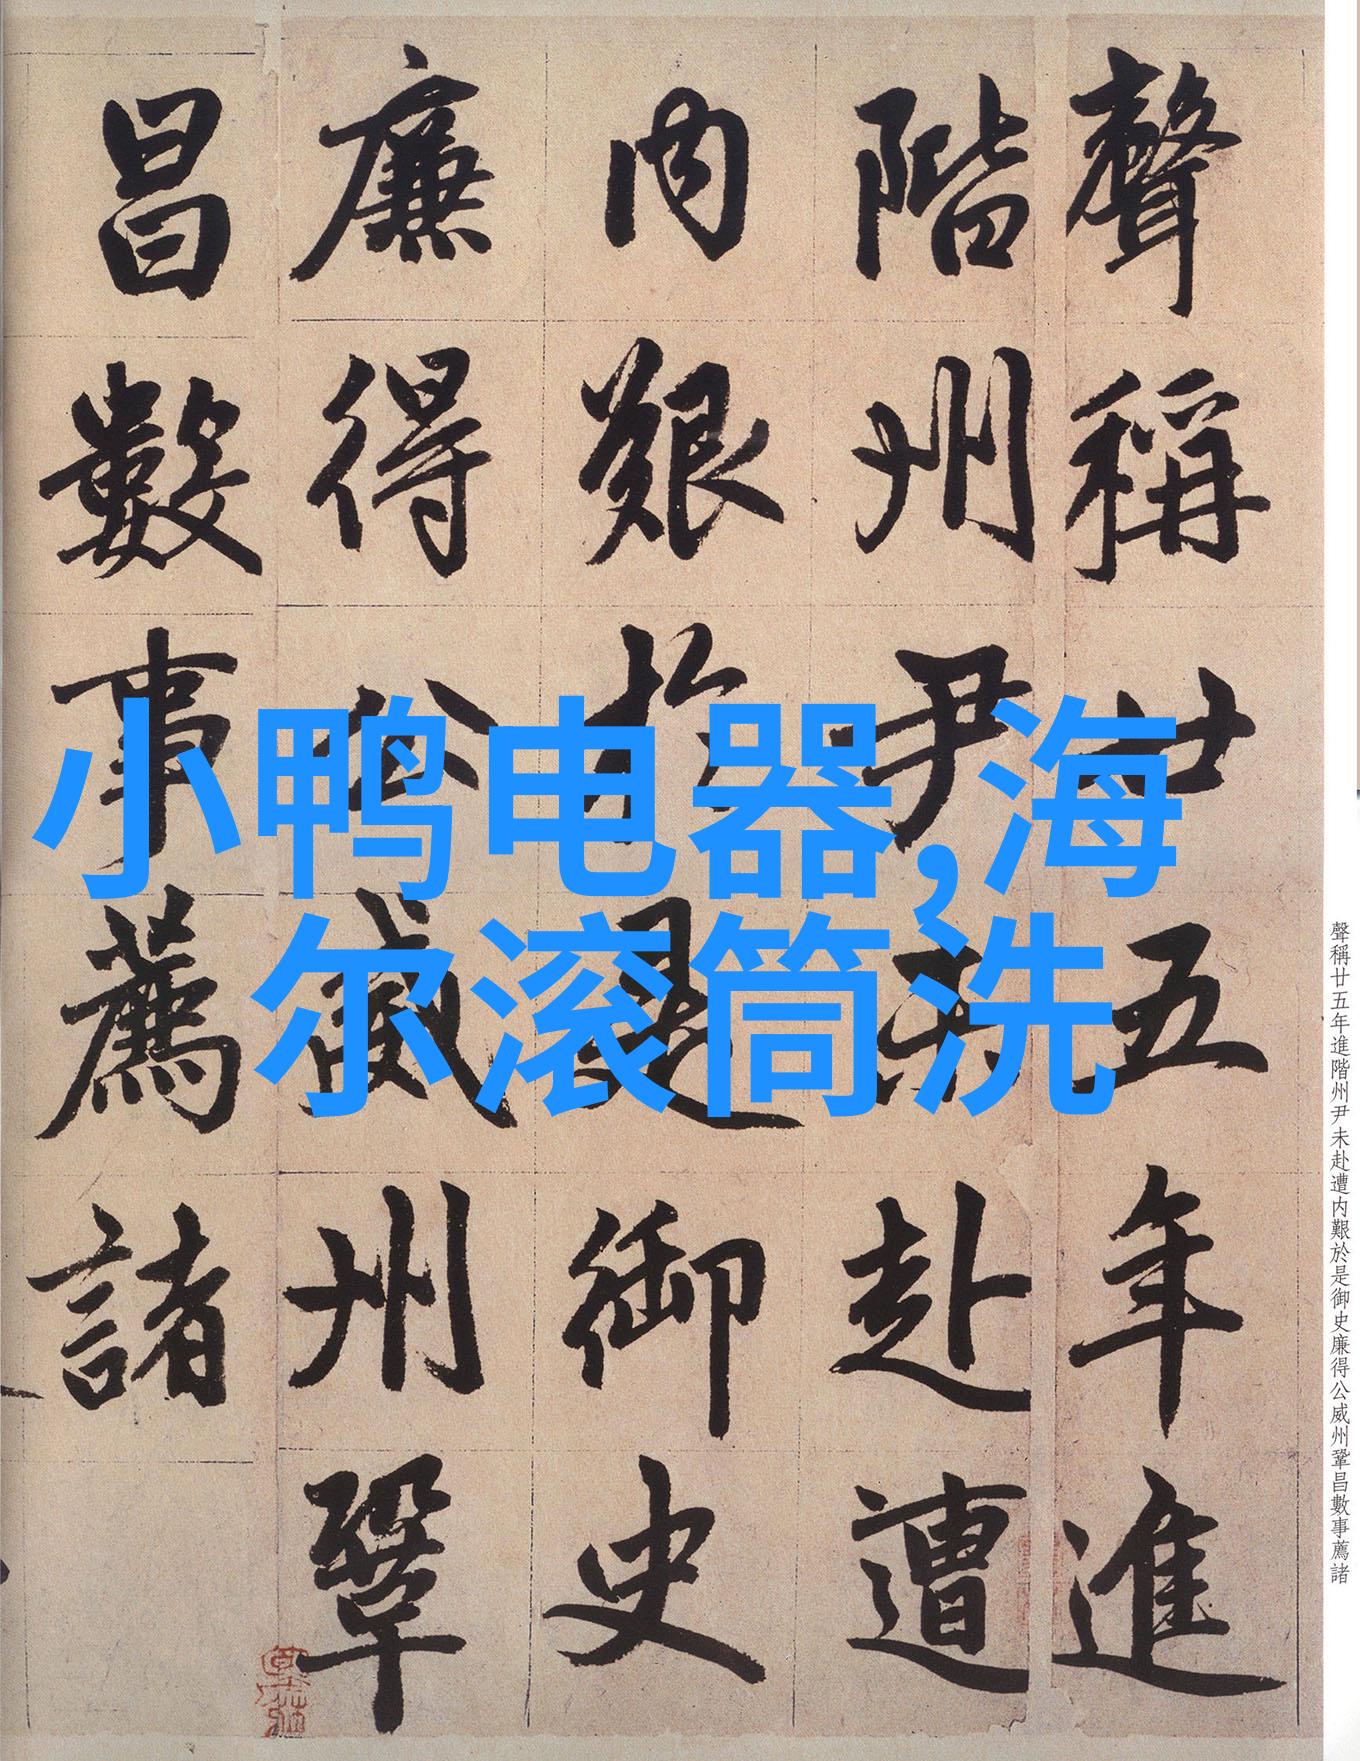 聲稱廿五年進
階州尹未赴遭
内艱於是御史
廉得公威州鞏
昌數事薦諸
小鸭电器,海
尔滚筒洗
聲稱廿五年進階州尹未赴遭内艱於是御史廉得公威州鞏昌數事薦諸